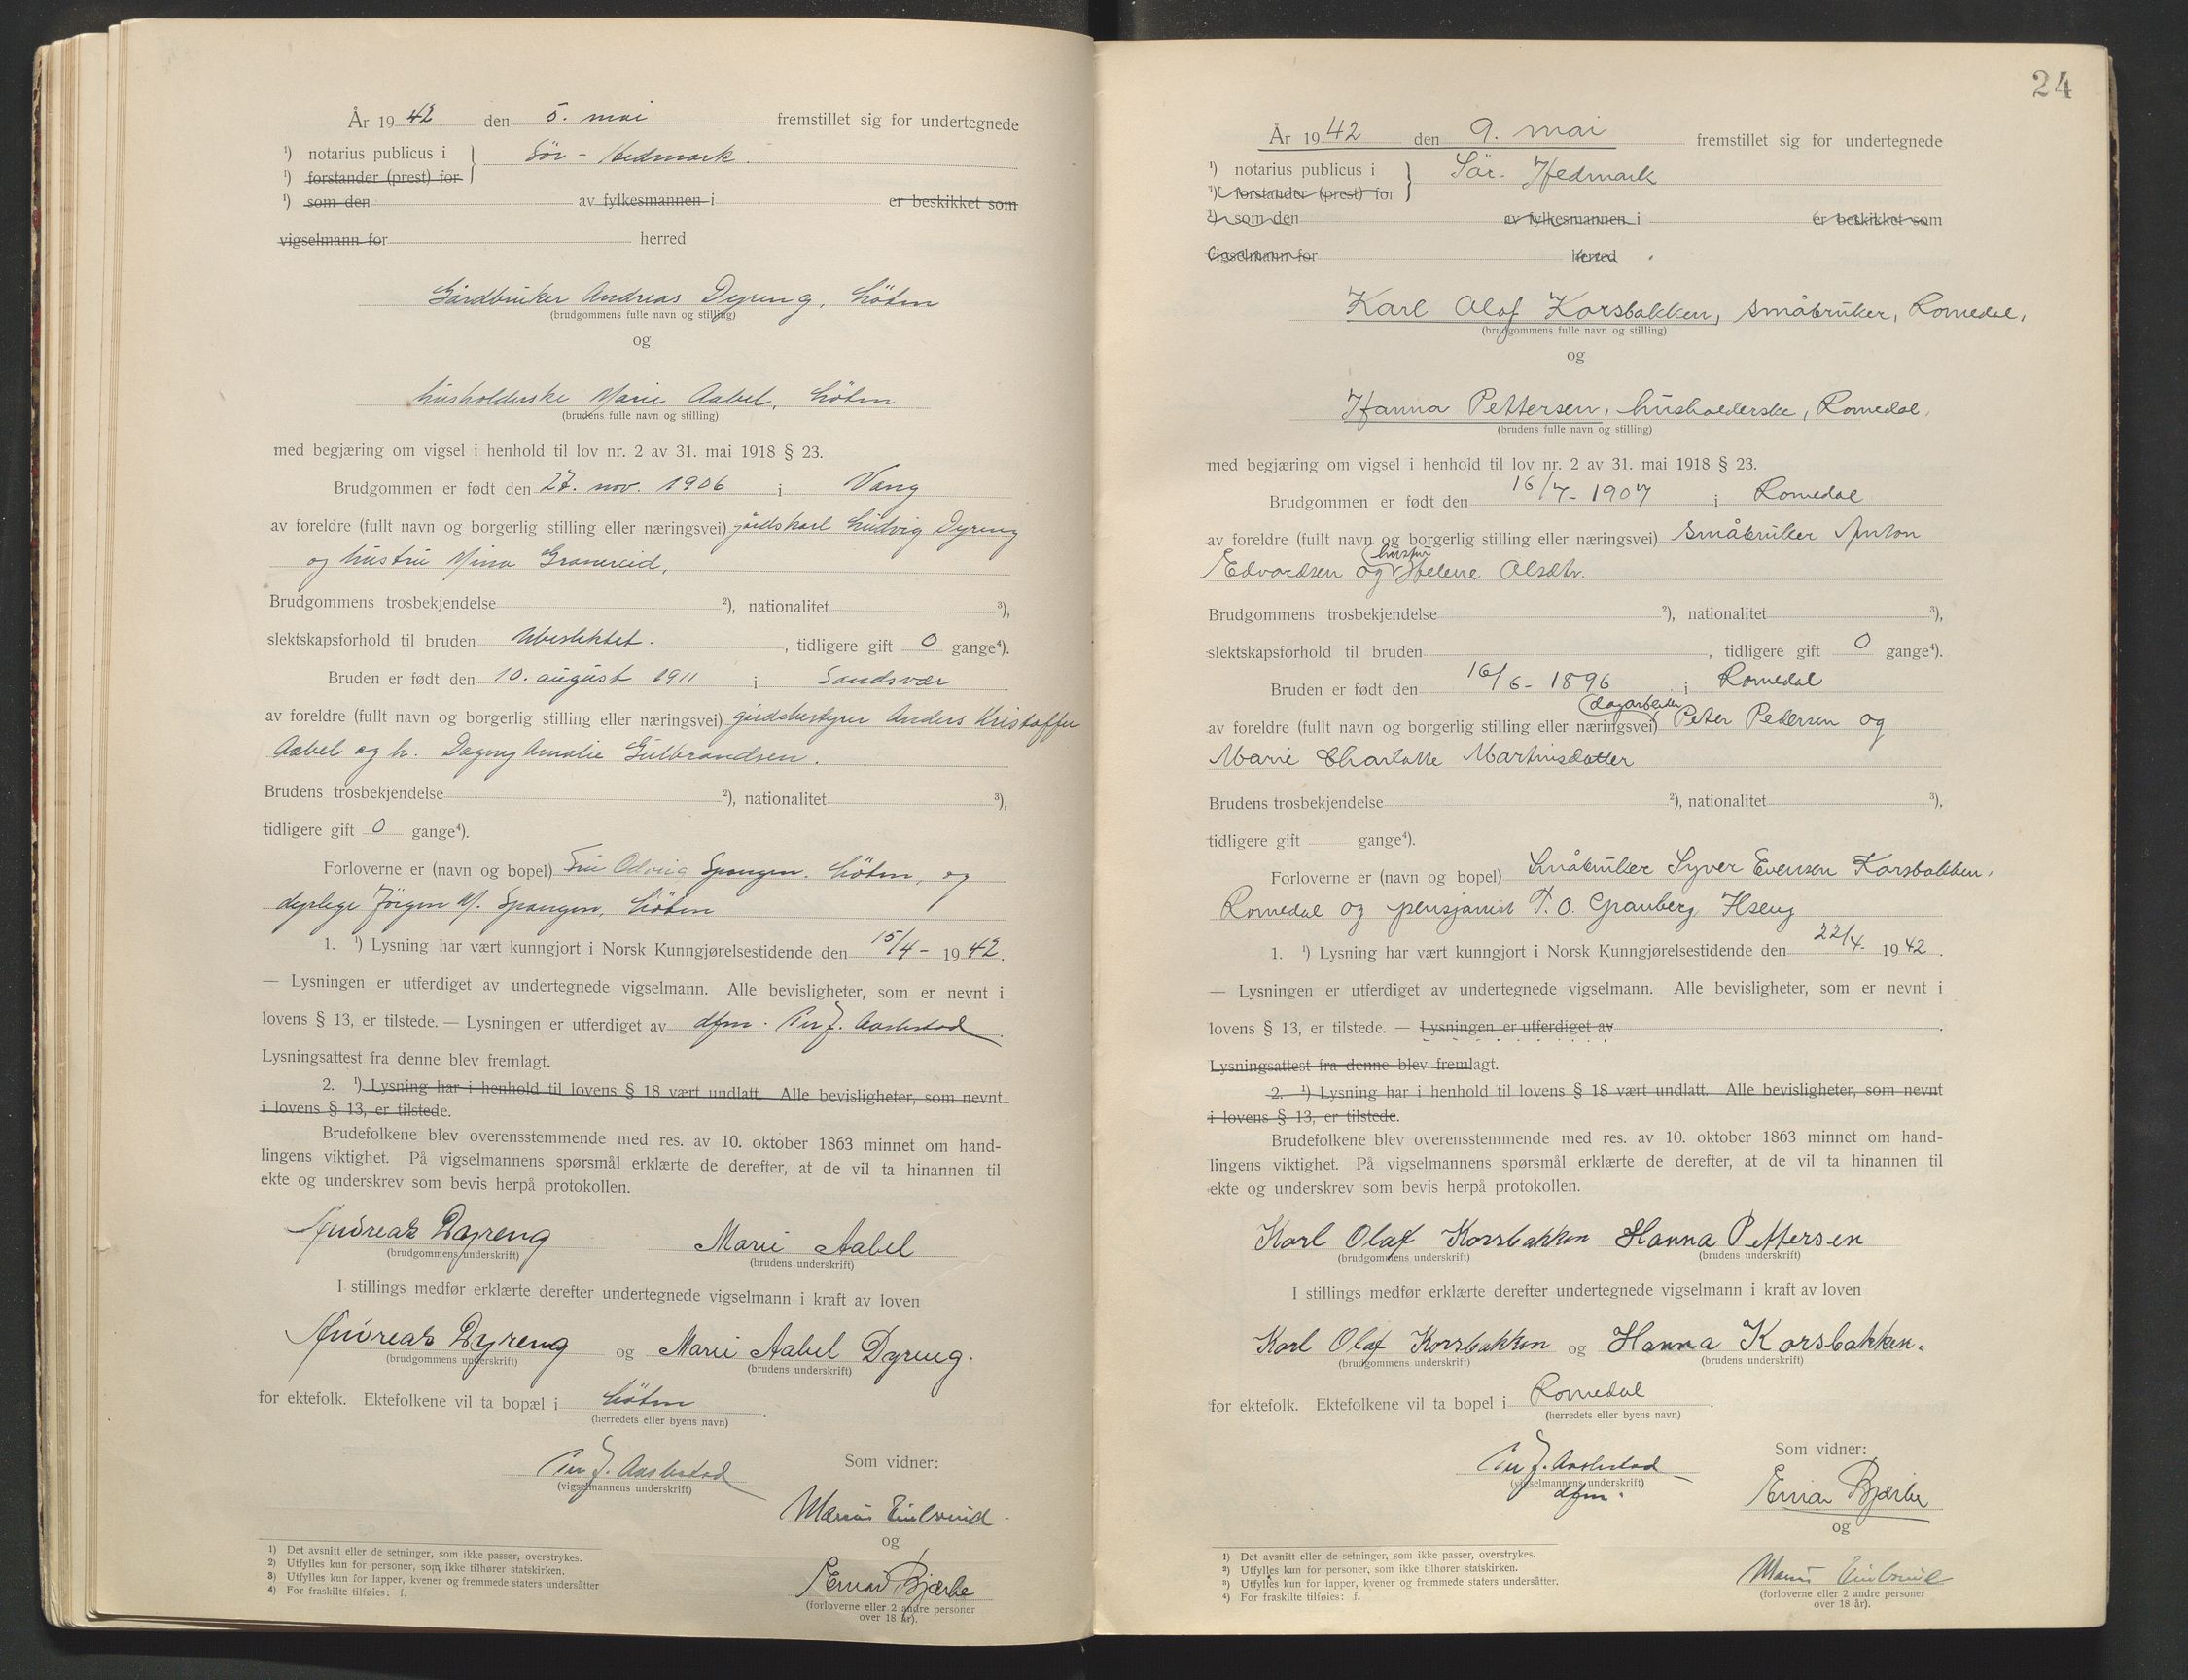 År 1942 den 5. mai fremstillet sig for undertegnede
¹) notarius publicus i } Sör - Hedmark.
¹) forstander (prest) for
¹) som den av fylkesmannen i er beskikket som
vigselmann for herred
Gårdbruker Andreas Dyreng, Löten
(brudgommens fulle navn og stilling)
og
husholderske Marie Aabel, Löten
(brudens fulle navn og stilling)
med begjæring om vigsel i henhold til lov nr. 2 av 31. mai 1918 § 23.
Brudgommen er født den 27. nov. 1906 i Vang
av foreldre (fullt navn og borgerlig stilling eller næringsvei) gårdskarl Ludvig Dyreng
og hustru Mina
Brudgommens trosbekjendelse ²), nationalitet ³),
slektskapsforhold til bruden Ubeslektet. , tidligere gift 0 gange⁴).
Bruden er født den 10. august 1911 i Sandsvær
av foreldre (fullt navn og borgerlig stilling eller næringsvei) gårdsbestyrer Anders Kristoffer
Aabel og h. Dagny Amalie Gulbrandsen.
Brudens trosbekjendelse ²), nationalitet ³),
tidligere gift 0 gange⁴).
Forloverne er (navn og bopel) Fru Spangen. Löten, og
dyrlege Jörgen M. Spangen, Löten
1. ¹) Lysning har vært kunngjort i Norsk Kunngjørelsestidende den 15/4 - 1942.
— Lysningen er utferdiget av undertegnede vigselmann. Alle bevisligheter, som er nevnt i
lovens § 13, er tilstede. — Lysningen er utferdiget av dfm. Per J. Aarlestad.
Lysningsattest fra denne blev fremlagt.
2. ¹) Lysning har i henhold til lovens § 18 vært undlatt. Alle bevisligheter, som nevnt
i lovens § 13, er tilstede.
Brudefolkene blev overensstemmende med res. av 10. oktober 1863 minnet om hand-
lingens viktighet. På vigselmannens spørsmål erklærte de derefter, at de vil ta hinannen til
ekte og underskrev som bevis herpå protokollen.
Andreas Dyreng Marie Aabel
(brudgommens underskrift) (brudens underskrift)
I stillings medfør erklærte derefter undertegnede vigselmann i kraft av loven
Andreas Dyreng og Marie Aabel Dyreng.
(brudgommens underskrift) (brudens underskrift)
for ektefolk. Ektefolkene vil ta bopæl i Löten .
(herredets eller byens navn)
Per J. Aarlestad Som vidner:
(vigselmannens underskrift)
Marius
og
Einar Bjærke
(forloverne eller 2 andre personer
over 18 år).
1) Det avsnitt eller de setninger, som ikke passer, overstrykes.
2) Utfylles kun for personer, som ikke tilhører statskirken.
3) Utfylles kun for lapper, kvener og fremmede staters undersåtter
4) For fraskilte tilføies: f.
24
År 1942 den 9. mai fremstillet sig for undertegnede
¹) notarius publicus i } Sör. Hedmark
¹) forstander (prest) for
¹) som den av fylkesmannen i er beskikket som
vigselmann for herred
Karl Olaf Korsbakken, småbruker, Romedal,
(brudgommens fulle navn og stilling)
og
Hanna Pettersen, husholderske, Romedal.
(brudens fulle navn og stilling)
med begjæring om vigsel i henhold til lov nr. 2 av 31. mai 1918 § 23.
Brudgommen er født den 16/7 - 1907 i Romedal
av foreldre (fullt navn og borgerlig stilling eller næringsvei) småbruker Anton
Edvardsen og hustru Helene
Brudgommens trosbekjendelse ²), nationalitet ³),
slektskapsforhold til bruden , tidligere gift 0 gange⁴).
Bruden er født den 16/6 - 1896 i Romedal
av foreldre (fullt navn og borgerlig stilling eller næringsvei) dagarbeider Peter Pedersen og
Marie Charlotte Martinsdatter
Brudens trosbekjendelse ²), nationalitet ³),
tidligere gift gange⁴).
Forloverne er (navn og bopel) Småbruker Syver Evensen Korsbakken,
Romedal og pensjonist P. O. Granberg,
1. ¹) Lysning har vært kunngjort i Norsk Kunngjørelsestidende den 22/4. 1942.
— Lysningen er utferdiget av undertegnede vigselmann. Alle bevisligheter, som er nevnt i
lovens § 13, er tilstede. — Lysningen er utferdiget av .
Lysningsattest fra denne blev fremlagt.
2. ¹) Lysning har i henhold til lovens § 18 vært undlatt. Alle bevisligheter, som nevnt
i lovens § 13, er tilstede.
Brudefolkene blev overensstemmende med res. av 10. oktober 1863 minnet om hand-
lingens viktighet. På vigselmannens spørsmål erklærte de derefter, at de vil ta hinannen til
ekte og underskrev som bevis herpå protokollen.
Karl Olaf Korsbakken Hanna Pettersen
(brudgommens underskrift) (brudens underskrift)
I stillings medfør erklærte derefter undertegnede vigselmann i kraft av loven
Karl Olaf Korsbakken og Hanna Korsbakken.
(brudgommens underskrift) (brudens underskrift)
for ektefolk. Ektefolkene vil ta bopel i Romedal .
(herredets eller byens navn)
Per J. Aarlestad Som vidner:
(vigselmannens underskrift)
dfm. Einar Bjærke
og
Marius
(forloverne eller 2 andre personer
over 18 år).
1) Det avsnitt eller de setninger, som ikke passer, overstrykes.
2) Utfylles kun for personer, som ikke tilhører statskirken.
3) Utfylles kun for lapper, kvener og fremmede staters undersåtter.
4) For fraskilte tilføies: f.